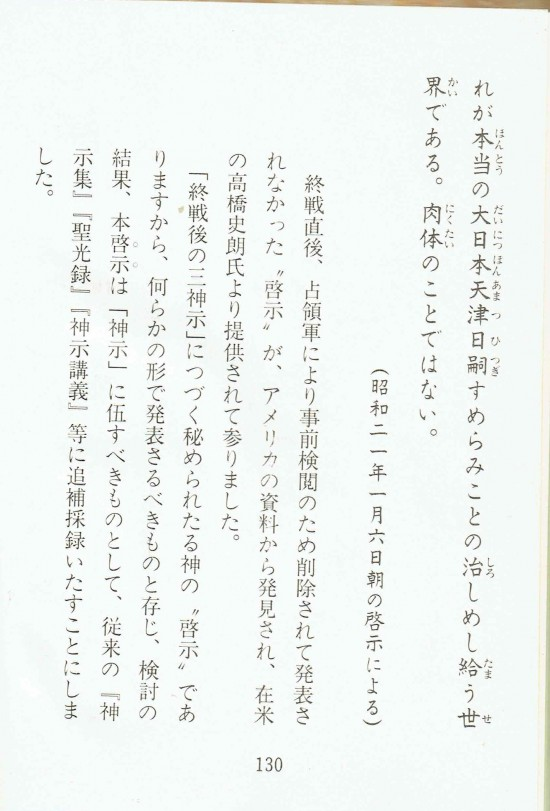 れが本当の大日本天津日嗣すめらみことの治しめし給う世
界である。肉体のことではない。
(昭和二一年一月六日朝の啓示による)
終戦直後、占領軍により事前検閲のため削除されて発表さ
れなかった〝啓示〟が、アメリカの資料から発見され、在米
の高橋史朗氏より提供されて参りました。
「終戦後の三神示」につづく秘められたる神の〝啓示〟であ
りますから、何らかの形で発表さるべきものと存じ、検討の
結果、本啓示は「神示」に伍すべきものとして、従来の『神
示集』『聖光録』『神示講義』等に追補採録いたすことにしま
した。
130